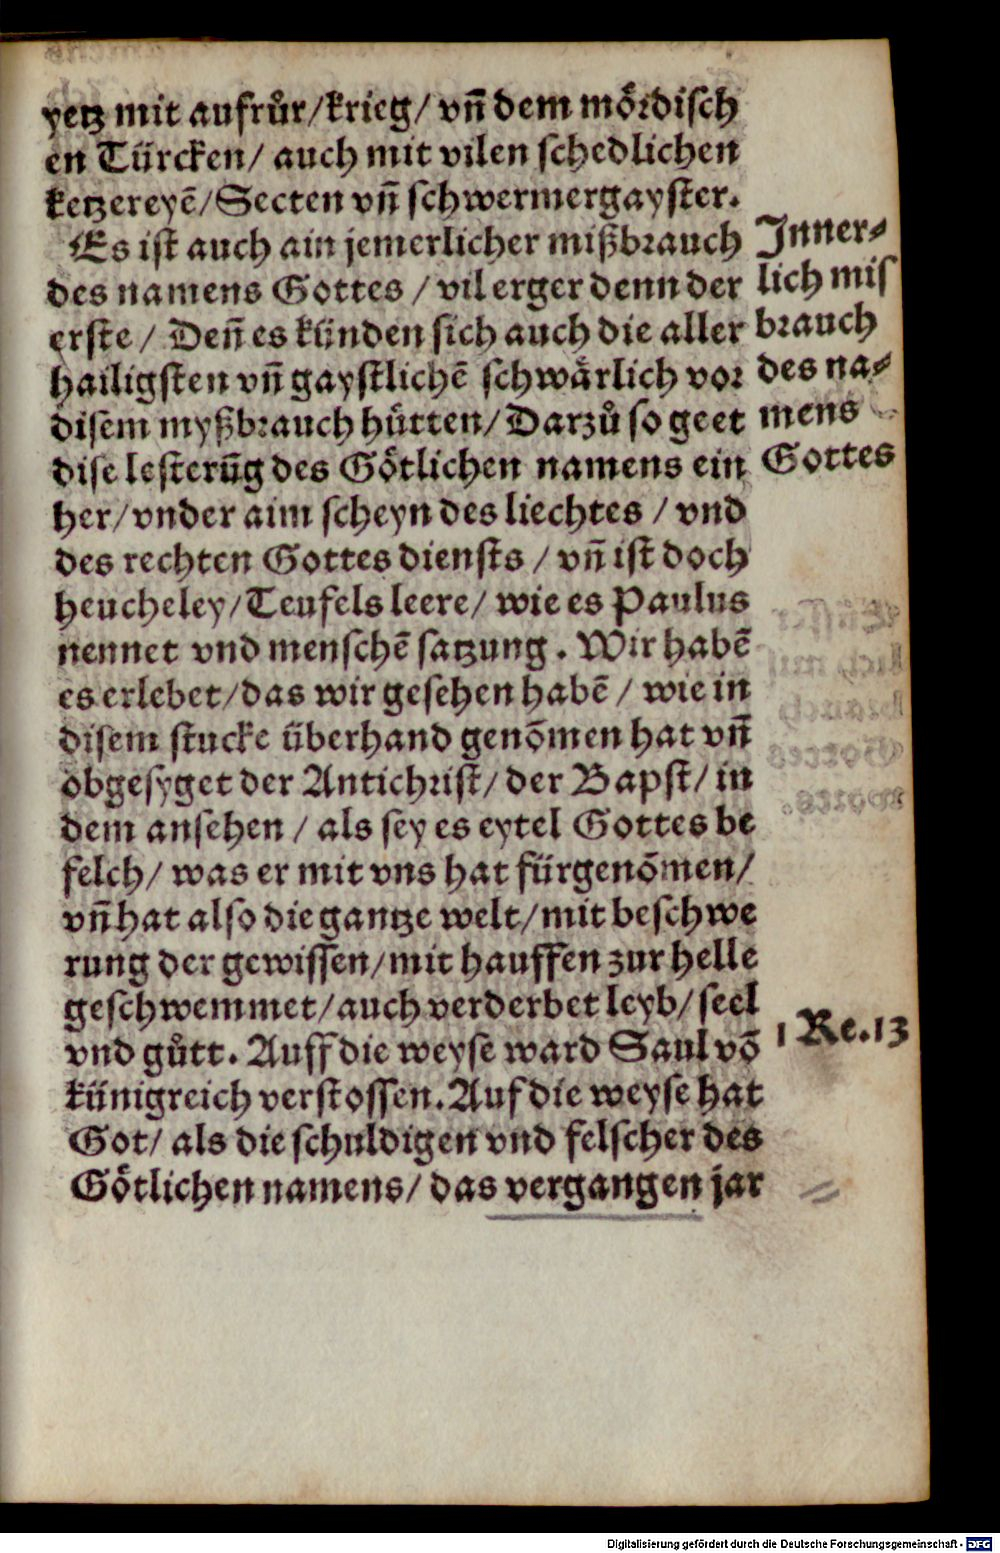 yetz mit aufrůr/krieg/ vñ dem mördisch
en Türcken/ auch mit vilen schedlichen
ketzereyē/Secten vñ schwermergayster.
Es ist auch ain jemerlicher mißbrauch
des namens Gottes / vil erger denn der
erste / Deñ es künden sich auch die aller
hailigsten vñ gaystlichē schwärlich vor
disem myßbrauch hütten/ Darzů so geet
dise lesterūg des Götlichen namens ein
her/vnder aim scheyn des liechtes / vnd
des rechten Gottes diensts / vñ ist doch
heucheley/Teufels leere/ wie es Paulus
nennet vnd menschē satzung . Wir habē
es erlebet/das wir gesehen habē / wie in
disem stucke überhand genōmen hat vñ
obgesyget der Antichrist/ der Bapst/ in
dem ansehen / als sey es eytel Gottes be
felch/ was er mit vns hat fürgenōmen/
vñ hat also die gantze welt/mit beschwe
rung der gewissen/mit hauffen zur helle
geschwemmet/auch verderbet leyb/ seel
vnd gůtt. Auff die weyse ward Saul vō
künigreich verstossen. Auf die weyse hat
Got/ als die schuldigen vnd felscher des
Götlichen namens/ das vergangen jar
Inner⸗
lich mis
brauch
des na⸗
mens
Gottes
1 Re.13
Digitalisierung gefördert durch die Deutsche Forschungsgemeinschaft - DFG